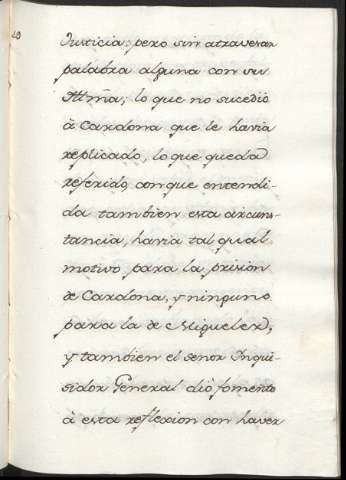 Justicia; pero sin atravesar
palabra alguna con su
Illma; lo que no sucedió
à Cardona que le havia
replicado, lo que queda
referido, con que entendi-
da tambien esta circuns-
tancia, havia tal qual
motivo para la prision
de Cardona, y ninguno
para la de Migueler,
y tambien el señor Inqui-
sidor General dió fomento
à esta reflexion con haver